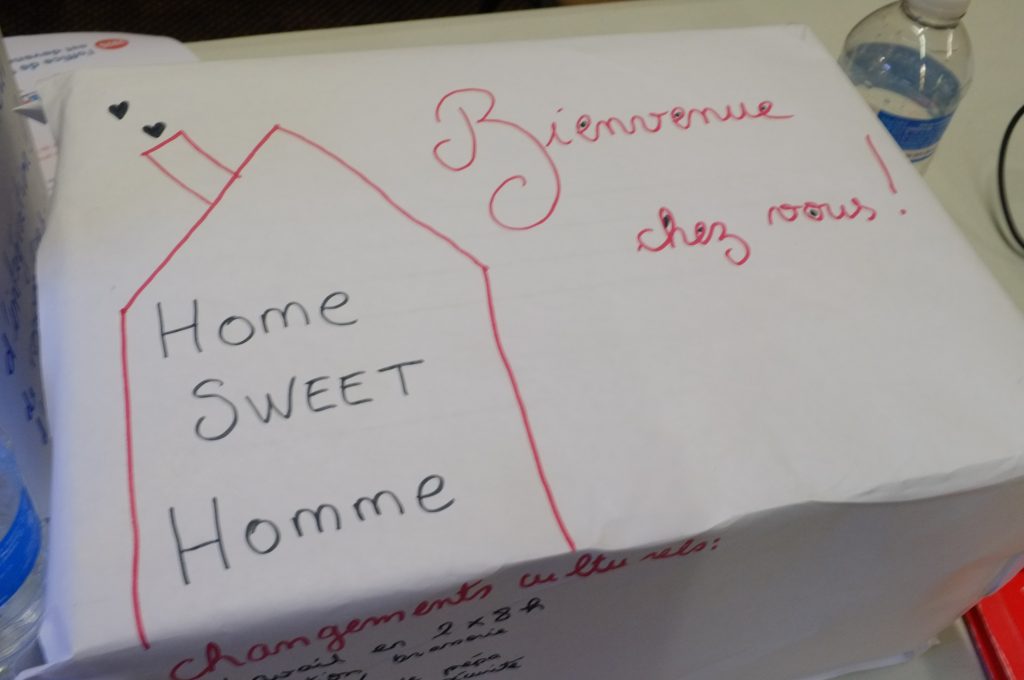 Bienvenue
chez vous!
Home
SWEET
Homme
changements culturels:
en 2 x 8 h
brasserie